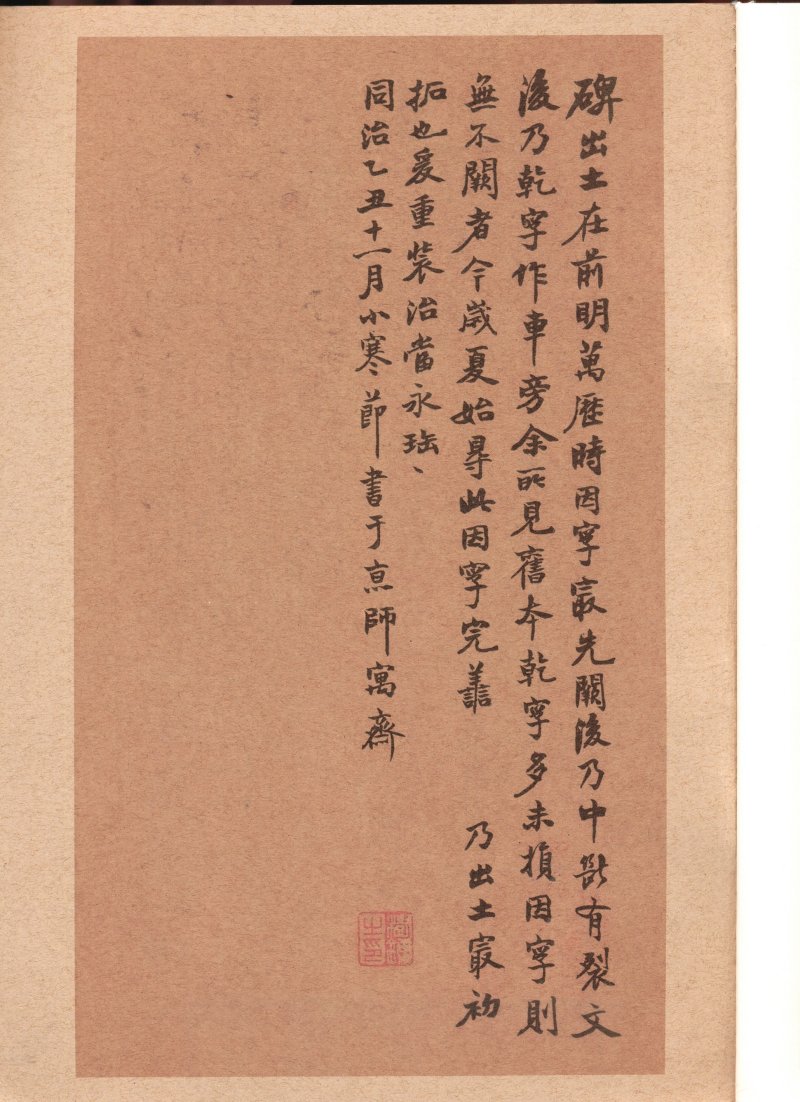 碑出土在前明萬歷時因字㝡先闕後乃中斷有裂文
後乃乾字作車旁余所見舊本乾字多未損因字則
無不闕者今歲夏始尋此因字完譱 乃出土㝡初
拓也爰重裝治當永珤、
同治乙丑十一月小寒節書于京師寓齋